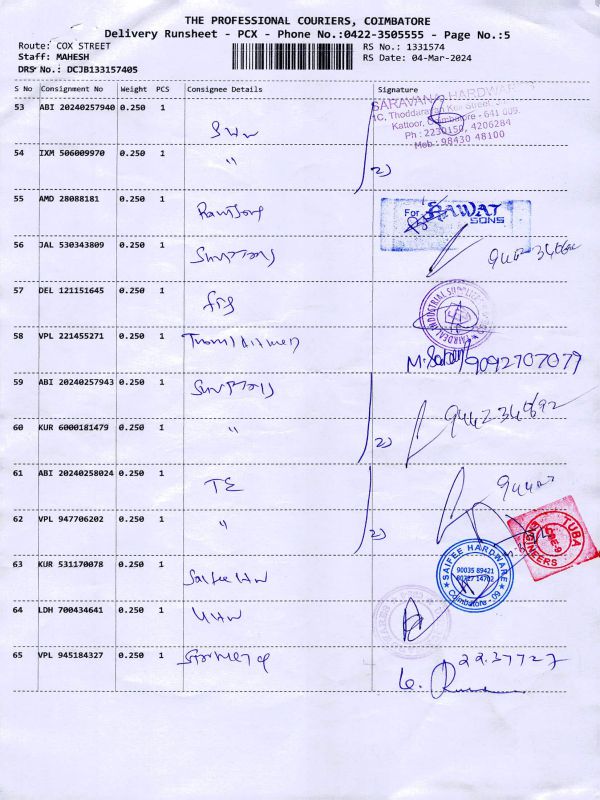 THE PROFESSIONAL COURIERS, COIMBATORE
Delivery Runsheet - PCX - Phone No.:0422-3505555 - Page No.:5
Route: COX STREET
RS No.: 1331574
Staff: MAHESH
RS Date: 04-Mar-2024
DRS No.: DCJB133157405
S No Consignment No Weight PCS Consignee Details Signature
53 ABI 20240257940 0.250 1
SARAVANA HARDWARES
Kattoor, Coimbatore - 641 009.
Ph : 2230150, 4206284
Mob : 98430 48100
54 IXM 506009970 0.250 1 " 2)
55 AMD 28088181 0.250 1
For RAWAT
SONS
56 JAL 530343809 0.250 1
57 DEL 121151645 0.250 1
58 VPL 221455271 0.250 1
9092707079
59 ABI 20240257943 0.250 1
9442234692
60 KUR 6000181479 0.250 1 " 2)
61 ABI 20240258024 0.250 1 TE
62 VPL 947706202 0.250 1 " 2)
TUBA
ENGINEERS
CBE-9
63 KUR 531170078 0.250 1 Saifee HW
SAIFEE HARDWARE
90035 89421
Coimbatore - 09
64 LDH 700434641 0.250 1 UHW
65 VPL 945184327 0.250 1
2237727